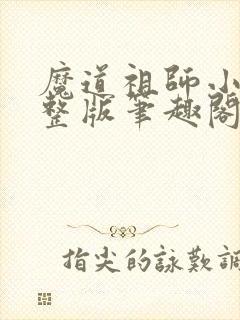 魔道祖師小
整版筆趣閣
指尖的詠歎調